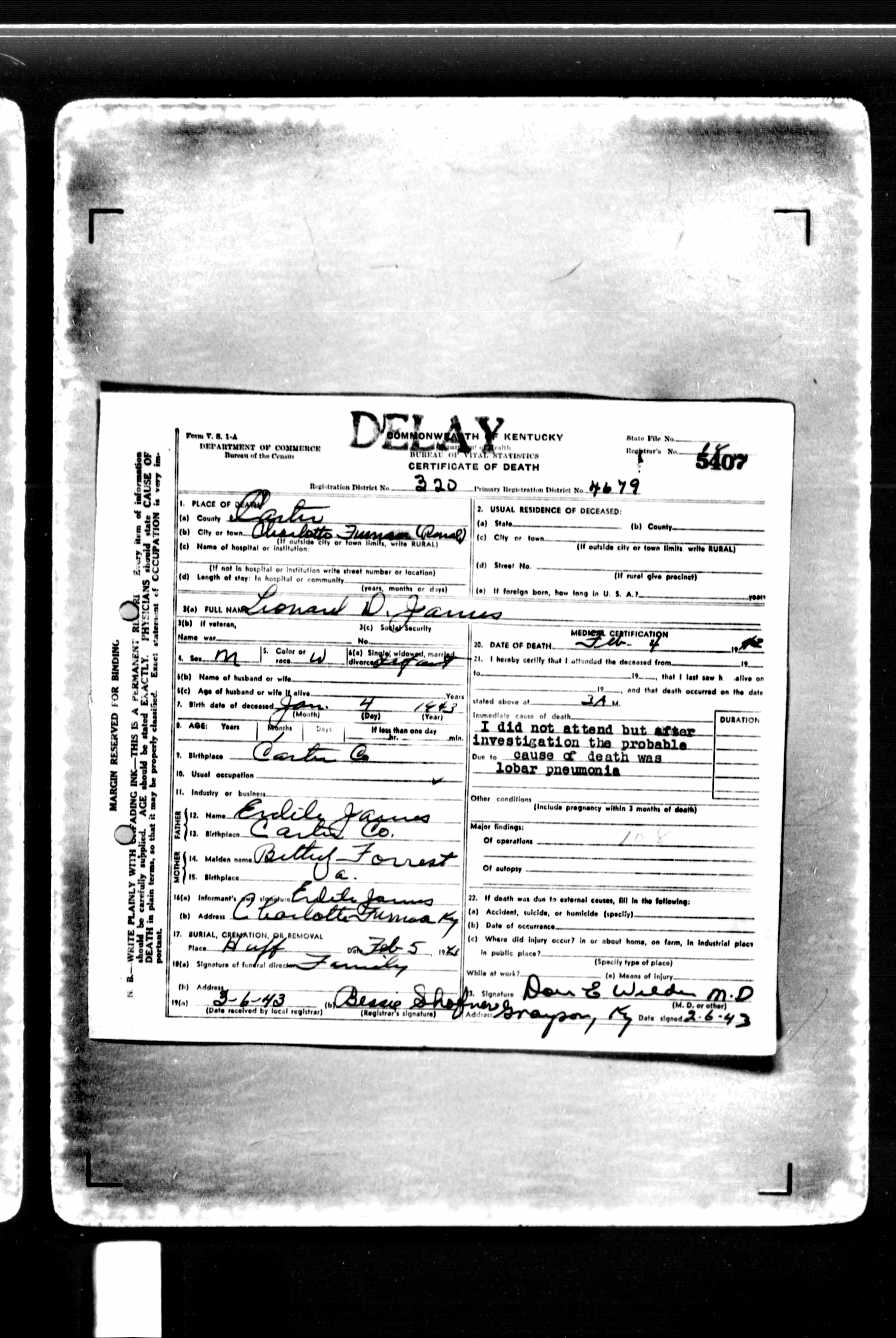 DELAY
Form V. S. 1-A
DEPARTMENT OF COMMERCE
Bureau of the Census
COMMONWEALTH OF KENTUCKY
BUREAU OF VITAL STATISTICS
CERTIFICATE OF DEATH
State File No.
Registrar's No.
5407
Registration District No. 320 Primary Registration District No. 4679
MARGIN RESERVED FOR BINDING
N. B.—WRITE PLAINLY WITH UNFADING INK—THIS IS A PERMANENT Every item of information
should be carefully supplied. AGE should be stated EXACTLY. PHYSICIANS should state CAUSE OF
DEATH in plain terms, so that it may be properly classified. Exact statement of OCCUPATION is very im-
portant.
1. PLACE OF DEATH
(a) County Carter
(b) City or town Charlotte Furnace (Rural)
(If outside city or town limits, write RURAL)
(c) Name of hospital or institution:
(If not in hospital or institution write street number or location)
(d) Length of stay: In hospital or community
(years, months or days)
2. USUAL RESIDENCE OF DECEASED:
(a) State (b) County
(c) City or town
(If outside city or town limits write RURAL)
(d) Street No.
(If rural give precinct)
(e) If foreign born, how long in U. S. A.? years
3(a) FULL NAME Leonard D. James
3(b) If veteran, 3(c) Social Security
Name war No.
4. Sex M 5. Color or race W 6(a) Single, widowed, married, divorced Infant
6(b) Name of husband or wife
6(c) Age of husband or wife if alive Years
7. Birth date of deceased Jan. 4 1943
(Month) (Day) (Year)
8. AGE: Years Months Days If less than one day
1 hr. min.
9. Birthplace Carter Co
10. Usual occupation
11. Industry or business
FATHER
12. Name James
13. Birthplace Carter Co.
MOTHER
14. Maiden name Forrest
15. Birthplace
16(a) Informant's signature James
(b) Address Charlotte Furnace Ky
17. BURIAL, CREMATION, OR REMOVAL
Place Huff Date Feb 5, 194
18(a) Signature of funeral director Family
(b) Address
19(a) 3-6-43 (b) Bessie
(Date received by local registrar) (Registrar's signature)
MEDICAL CERTIFICATION
20. DATE OF DEATH Feb. 4 19
21. I hereby certify that I attended the deceased from 19
to 19 , that I last saw h alive on
19 , and that death occurred on the date
stated above at 3A M.
Immediate cause of death DURATION
I did not attend but after
investigation the probable
Due to cause of death was
lobar pneumonia
Other conditions
(Include pregnancy within 3 months of death)
Major findings:
Of operations 108
Of autopsy
22. If death was due to external causes, fill in the following:
(a) Accident, suicide, or homicide (specify)
(b) Date of occurrence
(c) Where did injury occur? in or about home, on farm, in industrial place
in public place?
(Specify type of place)
While at work? (e) Means of injury
23. Signature Don E Wilder M.D
(M. D. or other)
Address Grayson, Ky Date signed 2-6-43